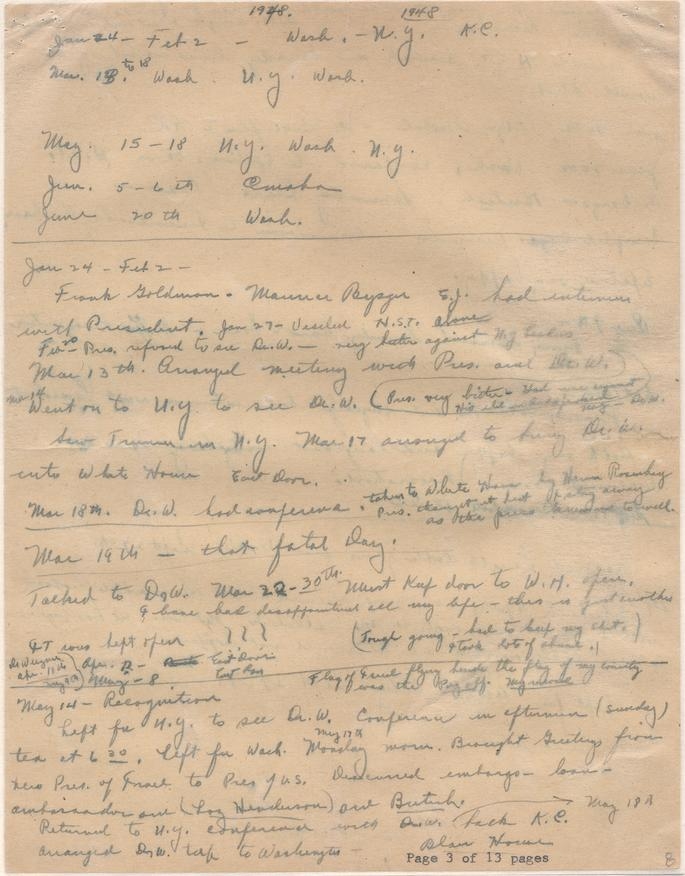 1948. 1948
Jan 24 - Feb 2 - Wash. - N.Y. K.C.
Mar. 13th to 18 Wash. N.Y. Wash.
May. 15-18 N.Y. Wash. N.Y.
Jun. 5-6th Omaha
June 20th Wash.
Jan 24 - Feb 2 -
Frank Goldman - Maurice E.J. had interview
with President. Jan 27 - Visited H.S.T. alone
Feb - Pres. refused to see Dr. W. - very bitter against
Mar 13th. Arranged meeting with Pres. and Dr. W.
Went on to N.Y. to see Dr. W. (Pres. very bitter -
Saw Truman in N.Y. Mar 17 arranged to bring Dr. W.
into White House East Door.
Mar 18th. Dr. W. had conference. taken to White House by Rosenberg
Pres.
as other
Mar 19th - that fatal Day.
Talked to Dr W. Mar 22-30th. Must Keep door to W.H. open.
I have had disappointment all my life - this is just another
& I was kept open
(Tough going - had to keep my chin.
& took lots of abuse.)
Dr Weizmann Apr. 11th
May - 8
East Door
Flag of Israel flying beside the flag of my country
was the Payoff.
May 14 - Recognition
Left for N.Y. to see Dr. W. Conference in afternoon (Sunday)
tea at 6 30. Left for Wash. Monday morn. May 17th Brought Greetings from
new Pres. of Israel to Pres of U.S. Discussed embargo - loan -
ambassador and (Loy Henderson) and British. May 18th
Returned to N.Y. conference with Dr. W. back K.C.
arranged Dr W. trip to Washington - Blair House
Page 3 of 13 pages
8